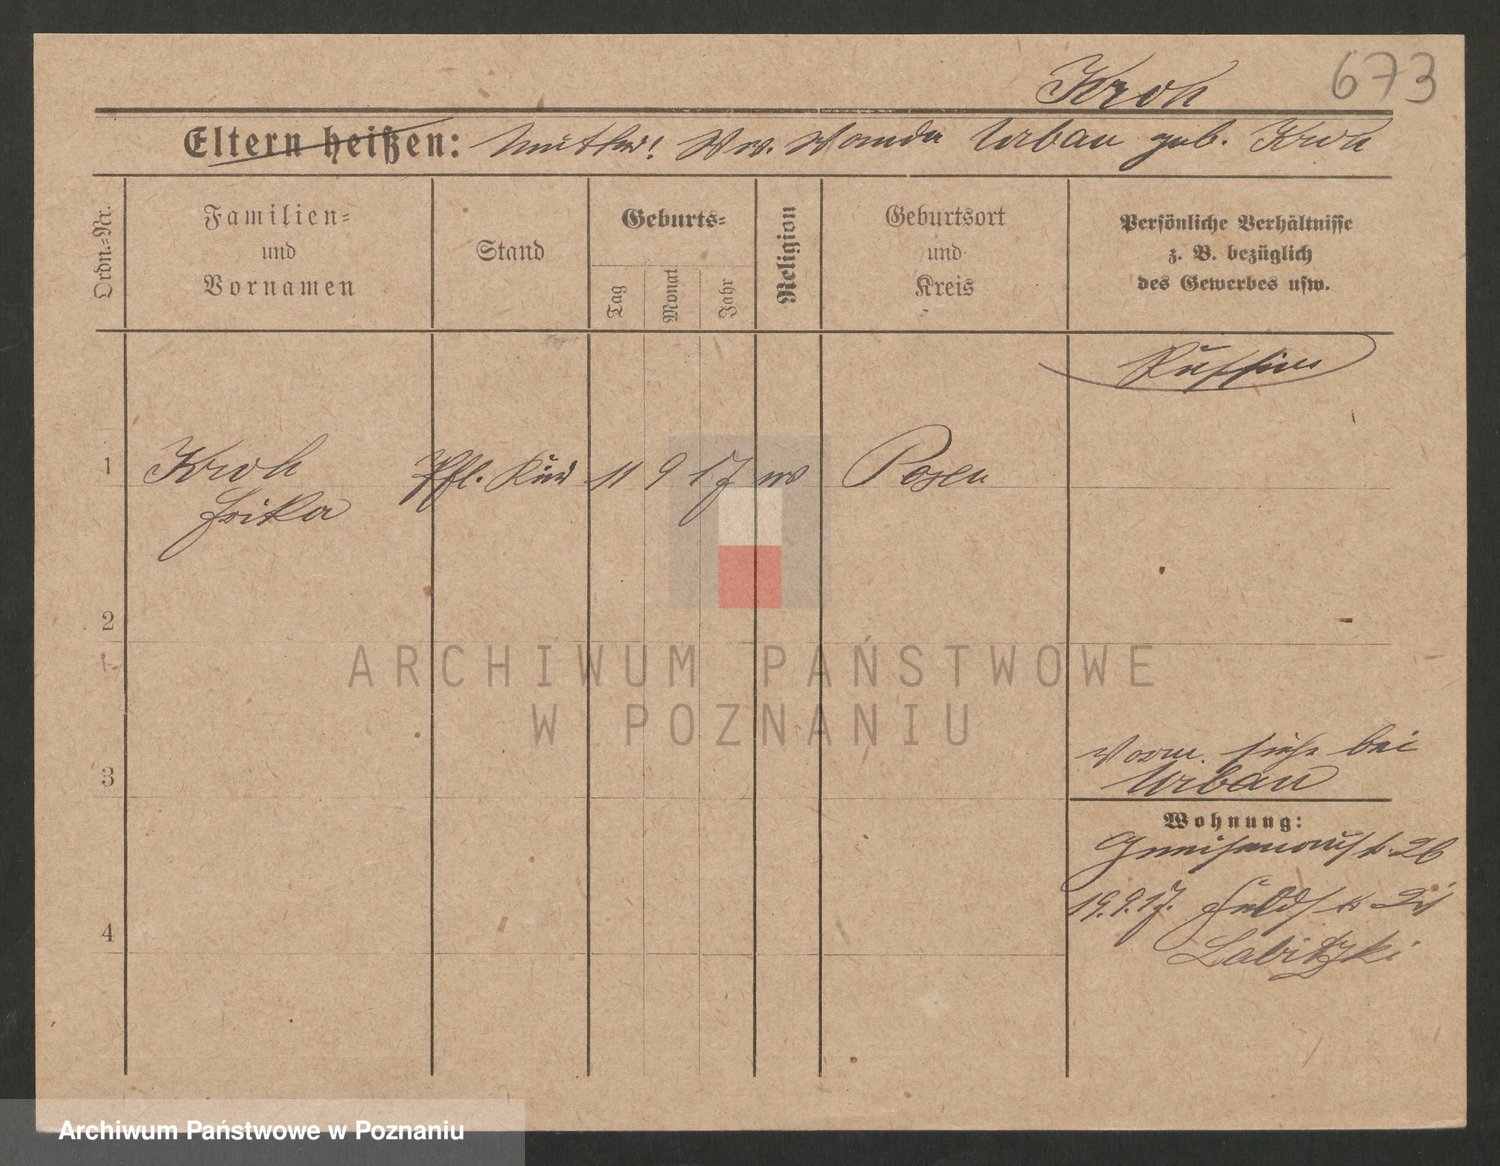 Kroh 673
Eltern heißen: Mutter! Ww. Wanda Urban geb. Kroh
Ordn.=Nr.
Familien=
und
Vornamen
Stand
Geburts=
Tag
Monat
Jahr
Religion
Geburtsort
und
Kreis
Persönliche Verhältnisse
z. B. bezüglich
des Gewerbes usw.
1 Kroh Pfl. Kind 11 9 17 Posen
Erika
2
3
Vorm. siehe bei
Urban
Wohnung:
Gneisenaustr. 26
4
19.9.17.
Labitzki
ARCHIWUM PAŃSTWOWE
W POZNANIU
Archiwum Państwowe w Poznaniu